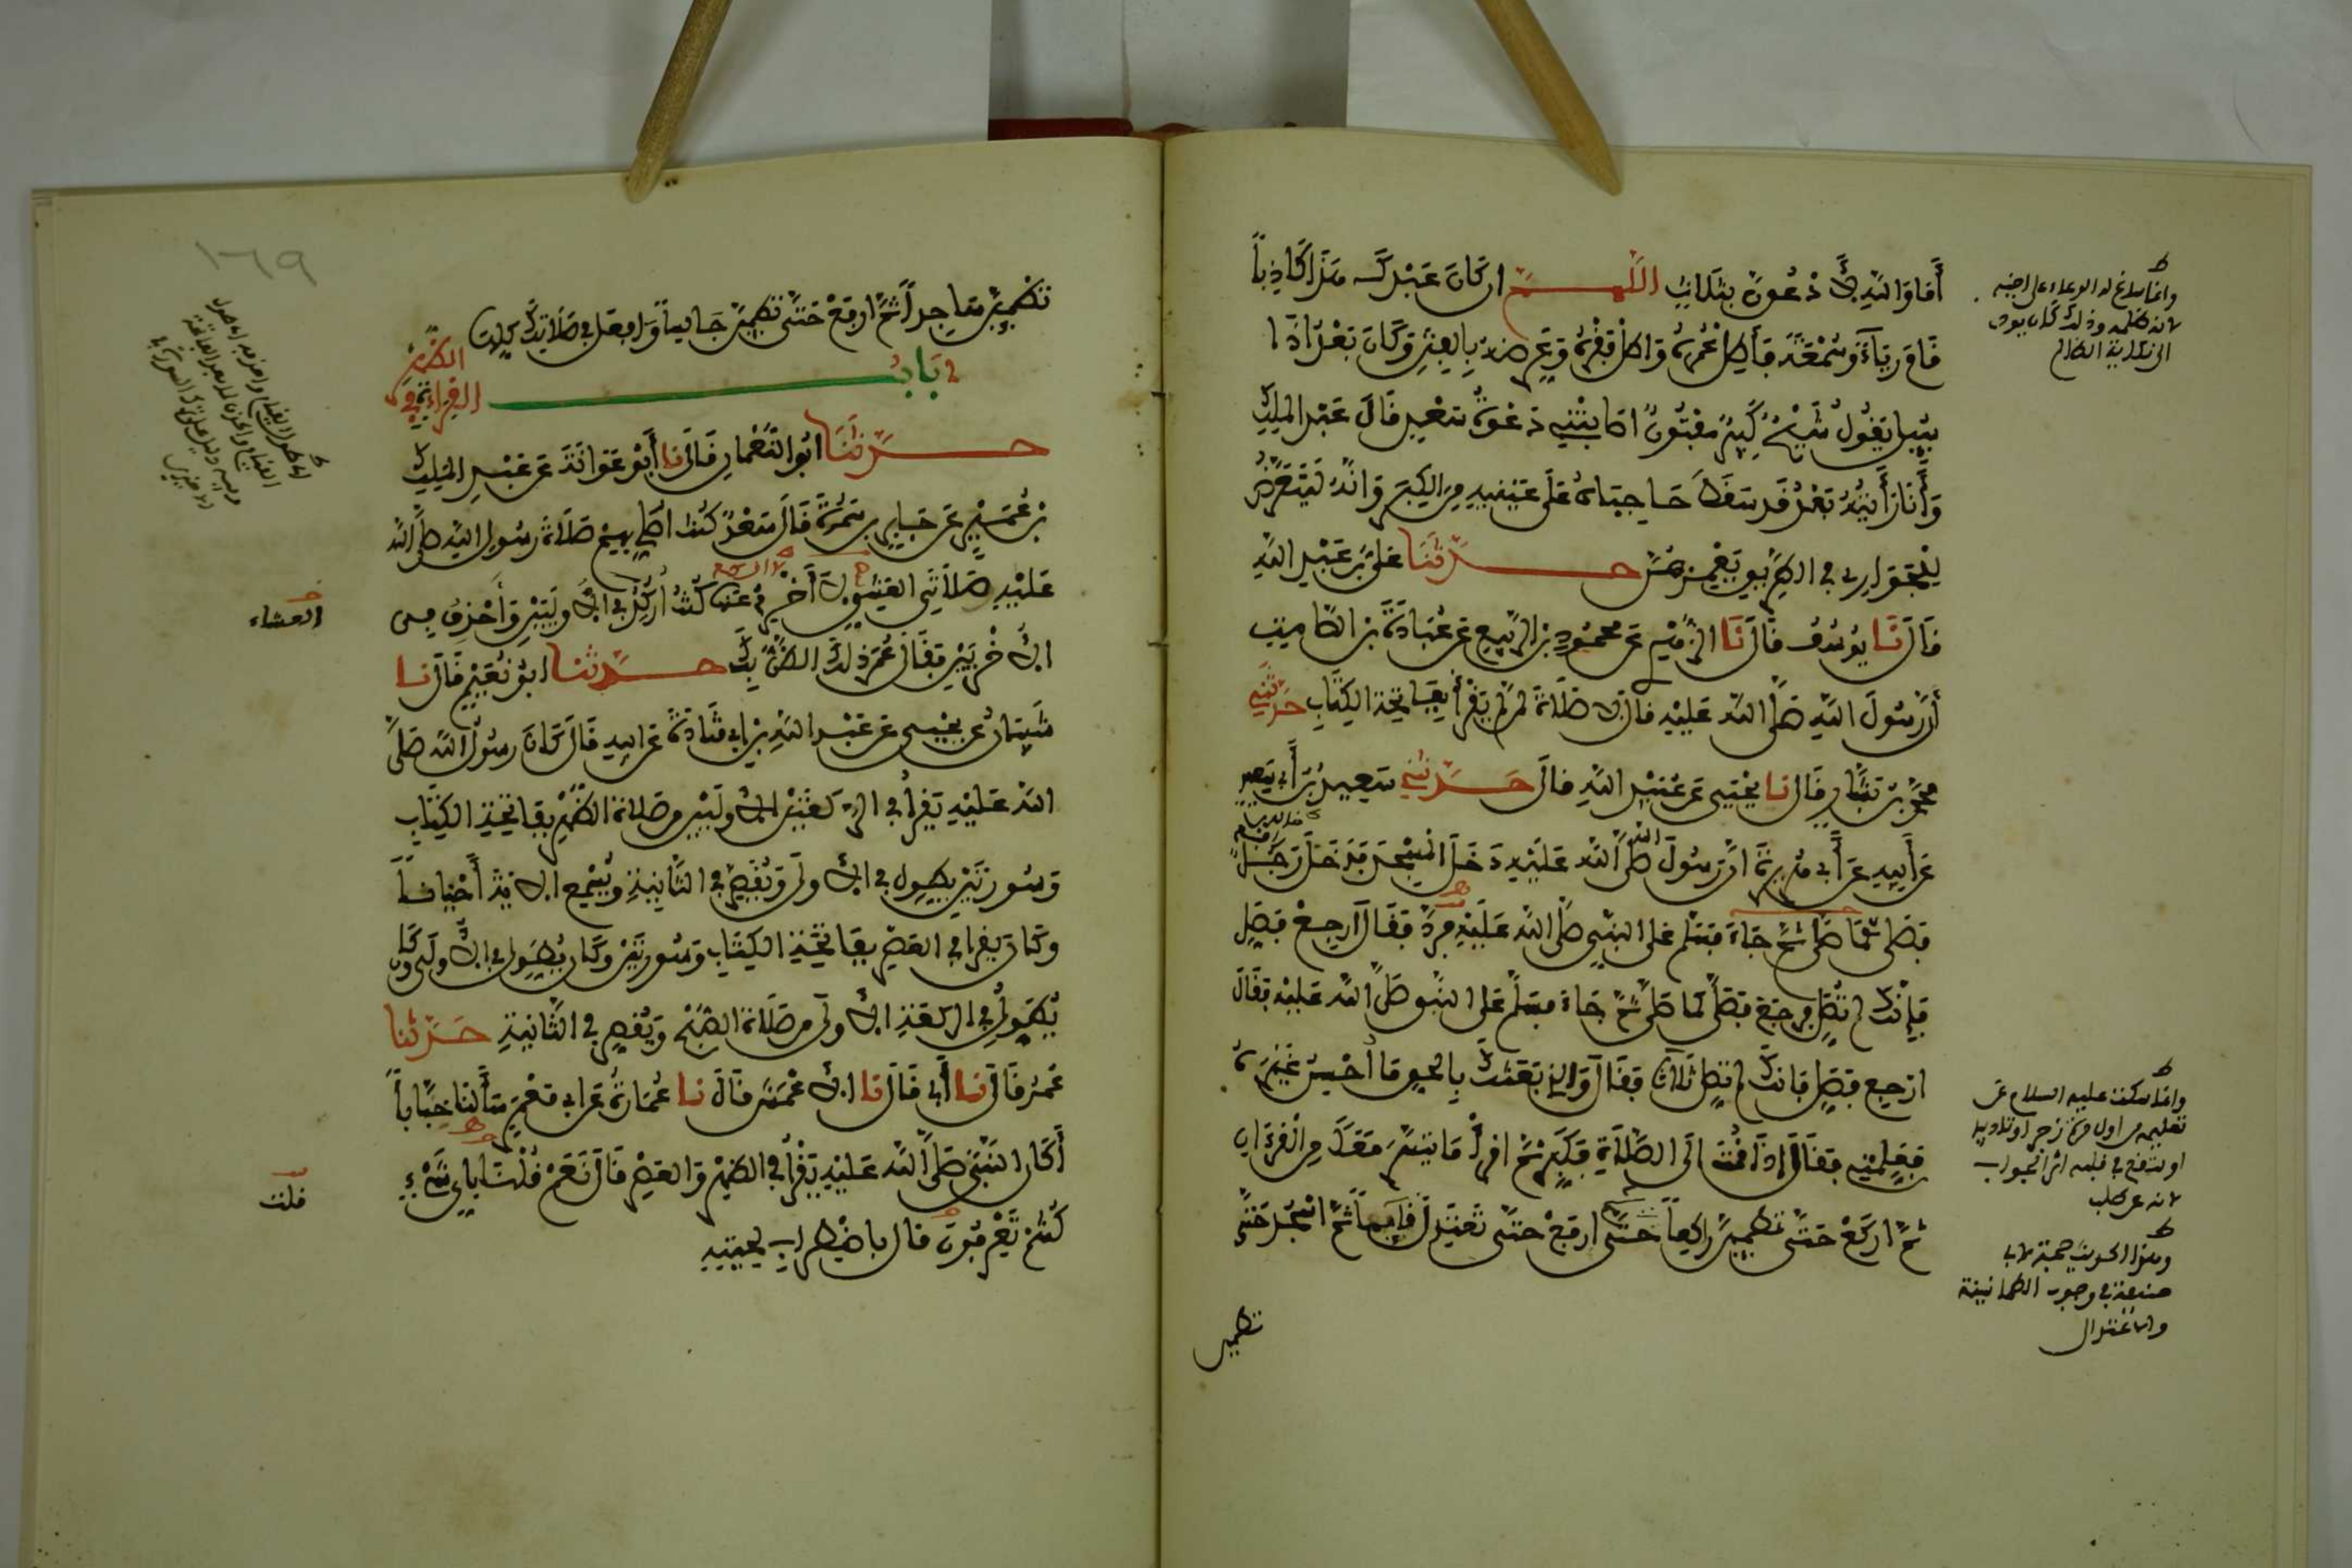 أَمَا وَاللهِ لَأَدْعُوَنَّ بِثَلَاثٍ اللَّهُمَّ ان كَانَ عَبْدُكَ هَذَا كَاذِباً
قَامَ رِيَاءً وَسُمْعَةً فَأَطِلْ عُمُرَهُ وَأَطِلْ فَقْرَهُ وَعَرِّضْهُ بِالْفِتَنِ وَكَانَ بَعْدُ إذَا
سُئِلَ يَقُولُ شَيْخٌ كَبِيرٌ مَفْتُونٌ اصَابَتْنِي دَعْوَةُ سَعْدٍ قَالَ عَبْدُ الْمَلِكِ
وَأَنَا رَأَيْتُهُ بَعْدُ قَدْ سَقَطَ حَاجِبَاهُ عَلَى عَيْنَيْهِ مِنَ الْكِبَرِ وَانَّهُ لَيَتَعَرَّضُ
لِلْجَوَارِي فِي الطَّرِيقِ يَغْمِزُهُنَّ حَدَّثَنَا عَلِيُّ بْنُ عَبْدِ اللهِ
قَالَ نَا سُفْيَانُ قَالَ نَا الزُّهْرِيُّ عَنْ مَحْمُودِ بْنِ الرَّبِيعِ عَنْ عُبَادَةَ بْنِ الصَّامِتِ
أَنَّ رَسُولَ اللهِ صَلَّى اللهُ عَلَيْهِ قَالَ لَا صَلَاةَ لِمَنْ لَمْ يَقْرَأْ بِفَاتِحَةِ الْكِتَابِ حَدَّثَنِي
مُحَمَّدُ بْنُ بَشَّارٍ قَالَ نَا يَحْيَى عَنْ عُبَيْدِ اللهِ قَالَ حَدَّثَنِي سَعِيدُ بْنُ أَبِي سَعِيدٍ
عَنْ أَبِيهِ عَنْ أَبِي هُرَيْرَةَ انَّ رَسُولَ اللهِ صَلَّى اللهُ عَلَيْهِ دَخَلَ الْمَسْجِدَ فَدَخَلَ رَجُلٌ
فَصَلَّى كَمَا صَلَّى ثُمَّ جَاءَ فَسَلَّمَ عَلَى النَّبِيِّ صَلَّى اللهُ عَلَيْهِ فَرَدَّ فَقَالَ ارْجِعْ فَصَلِّ
فَإِنَّكَ لَمْ تُصَلِّ فَرَجَعَ فَصَلَّى كَمَا صَلَّى ثُمَّ جَاءَ فَسَلَّمَ عَلَى النَّبِيِّ صَلَّى اللهُ عَلَيْهِ فَقَالَ
ارْجِعْ فَصَلِّ فَإنَّكَ لَمْ تُصَلِّ ثَلَاثاً فَقَالَ وَالَّذِي بَعَثَكَ بِالْحَقِّ مَا أُحْسِنُ غَيْرَهُ
فَعَلِّمْنِي فَقَالَ إِذَا قُمْتَ الَى الصَّلَاةِ فَكَبِّرْ ثُمَّ اقْرَأْ مَا تَيَسَّرَ مَعَكَ مِنَ الْقُرْءَانِ
ثُمَّ ارْكَعْ حَتَّى تَطْمَئِنَّ رَاكِعاً حَتَّى ارْفَعْ حَتَّى تَعْتَدِلَ قَايِماً ثُمَّ اسْجُدْ حَتَّى
تطمين
وانما ساغ له الدعاء على اخيه
لانه ظلمه وذلك كان يودي
الى نكاية الظالم
وانما سكت عليه السلام عن
تعليمه من اول مرة زجرا وتاديبا
او ليقع في قلبه اثر الجواب
لانه عن طلب
وهذا الحديث حجة لابي
حنيفة في وجوب الطمانينة
والاعتدال
١٦٩
تَطْمَئِنَّ سَاجِداً ثُمَّ ارْفَعْ حَتَّى تَطْمَئِنَّ جَالِساً وَافْعَلْ فِي صَلَاتِكَ كُلِّهَا
بَابُ الْقِرَاءَةِ فِي الظُّهْرِ
حَدَّثَنَا ابُو النُّعْمَانِ قَالَ نَا أَبُو عَوَانَةَ عَنْ عَبْدِ الْمَلِكِ
بْنِ عُمَيْرٍ عَنْ جَابِرِ بْنِ سَمُرَةَ قَالَ سَعْدٌ كُنْتُ اصَلِّي بِهِمْ صَلَاةَ رَسُولِ اللهِ صَلَّى اللهُ
عَلَيْهِ صَلَاتَيِ الْعَشِيِّ لَا أَخْرِمُ عَنْهَا كُنْتُ أَرْكُدُ فِي الْأُولَيَيْنِ وَأَحْذِفُ فِي
الْأُخْرَيَيْنِ فَقَالَ عُمَرُ ذَلِكَ الظَّنُّ بِكَ حَدَّثَنَا ابُو نُعَيْمٍ قَالَ نَا
شَيْبَانُ عَنْ يَحْيَى عَنْ عَبْدِ اللهِ بْنِ أَبِي قَتَادَةَ عَنْ ابِيهِ قَالَ كَانَ رَسُولُ اللهِ صَلَّى
اللهُ عَلَيْهِ يَقْرَأُ فِي الرَّكْعَتَيْنِ الْأُولَيَيْنِ مِنْ صَلَاةِ الظُّهْرِ بِفَاتِحَةِ الْكِتَابِ
وَسُورَتَيْنِ يُطَوِّلُ فِي الْأُولَى وَيُقَصِّرُ فِي الثَّانِيَةِ وَيُسْمِعُ الْآيَةَ أَحْيَاناً
وَكَانَ يَقْرَأُ فِي الْعَصْرِ بِفَاتِحَةِ الْكِتَابِ وَسُورَتَيْنِ وَكَانَ يُطَوِّلُ فِي الْأُولَى وَكَانَ
يُطَوِّلُ فِي الرَّكْعَةِ الْأُولَى مِنْ صَلَاةِ الصُّبْحِ وَيُقَصِّرُ فِي الثَّانِيَةِ حَدَّثَنَا
عُمَرُ قَالَ نَا أَبِي قَالَ نَا الْأَعْمَشُ قَالَ نَا عُمَارَةُ عَنْ ابِي مَعْمَرٍ سَأَلْنَا خَبَّاباً
أَكَانَ النَّبِيُّ صَلَّى اللهُ عَلَيْهِ يَقْرَأُ فِي الظُّهْرِ وَالْعَصْرِ قَالَ نَعَمْ قُلْتُ بِأَيِّ شَيْءٍ
كُنْتُمْ تَعْرِفُونَ قَالَ بِاضْطِرَابِ لِحْيَتِهِ
العشاء
قلت